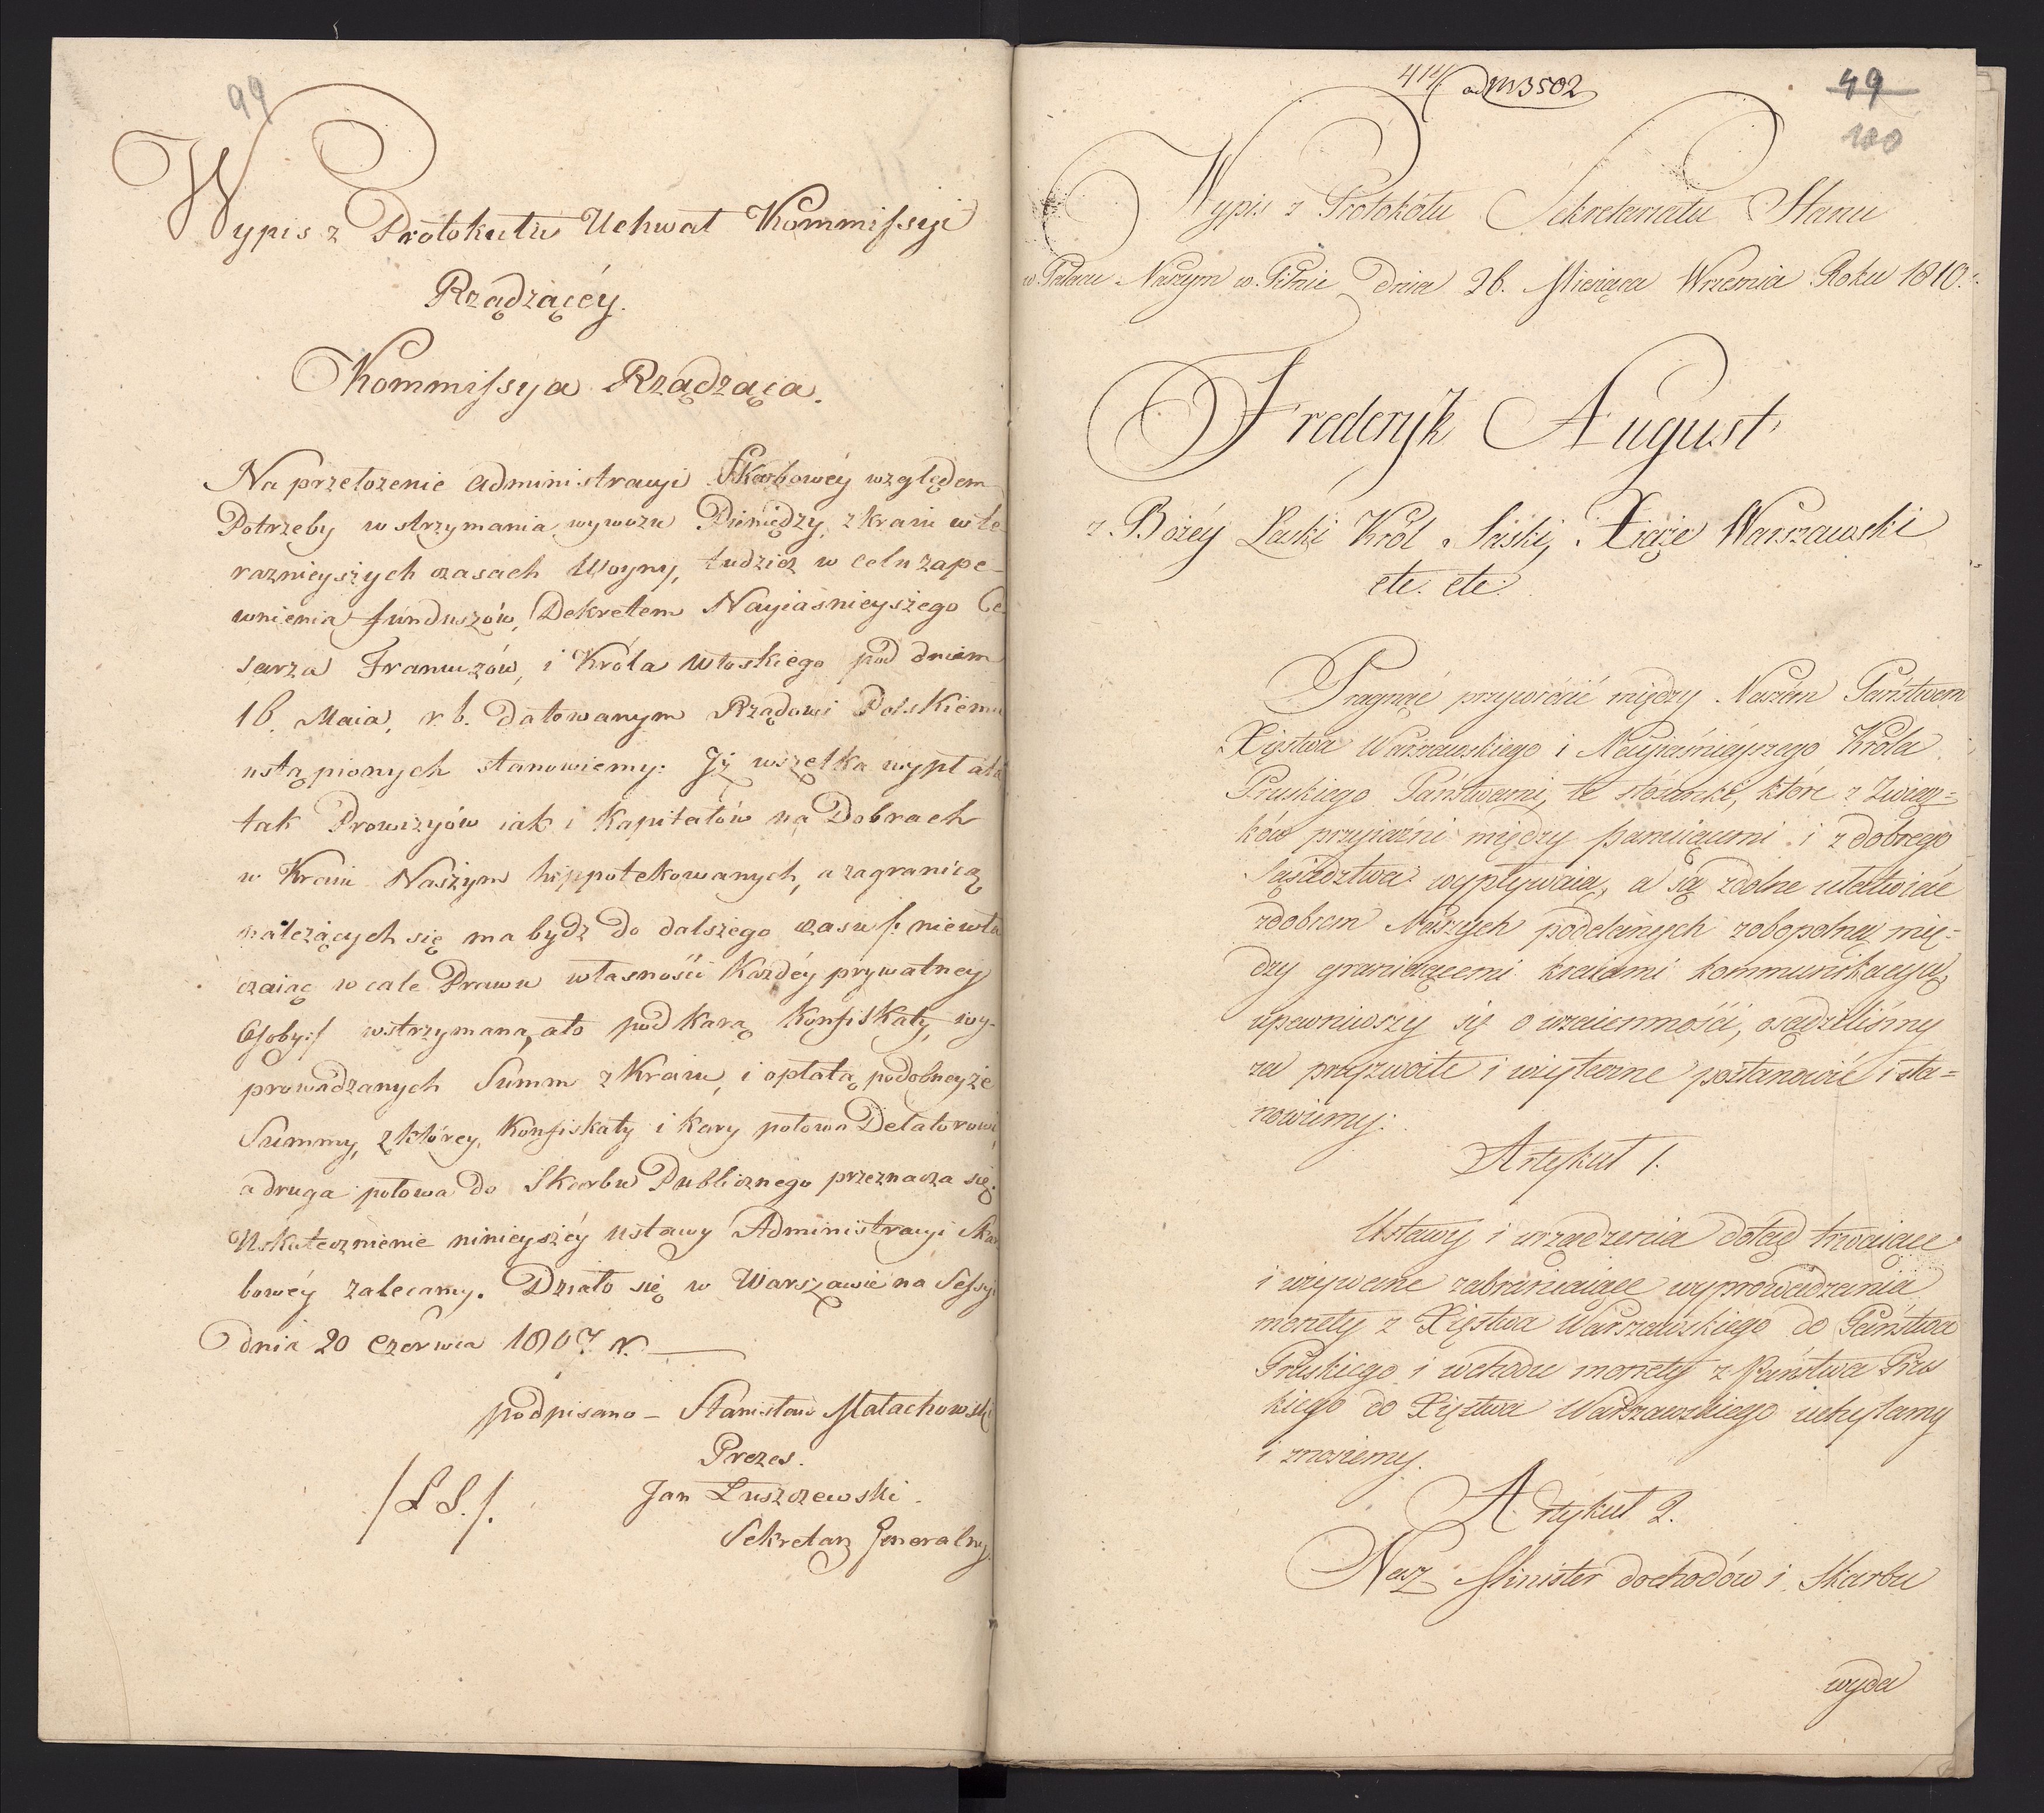 99
Wypis z Protokułu Uchwał Kommissyi
Rządzącéy.
Kommissya Rządząca.
Na przełożenie administracyi Skarbowéy względem
Potrzeby wstrzymania wywozu Pieniędzy z kraiu w te-
raznieyszych czasach Woyny, tudzież w celu zape-
wnienia funduszów, Dekretem Nayiasnieyszego Ce-
sarza Francuzów, i Króla Włoskiego pod dniem
16. Maia, r. b. datowanym Rządowi Polskiemu
ustąpionych stanowiemy: Iż wszelka wypłata
tak Prowizyów iak i Kapitałów na Dobrach
w Kraiu Naszym hippotekowanych, a zagranicę
należących się ma bydz do dalszego czasu /: niewłą
czaiąc wcale Prawu własności Każdéy prywatney
Osoby:/ wstrzymana, ato pod karą Konfiskaty, wy-
prowadzanych Summ z Kraiu, i opłatą podobneyże
Summy, z którey Konfiskaty i kary połowa Delatorowi,
a druga połowa do Skarbu Publicznego przeznacza się.
Uskutecznienie ninieyszéy ustawy Administracyi Skar
bowéy zalecamy. Działo się w Warszawie na Sessyi
dnia 20 Czerwca 1807. r.
podpisano - Stanisław Małachowski
Prezes.
/L.S./. Jan Łuszczewski.
Sekretarz Generalny.
414/ ad N 3502
49
100
Wypis z Protokołu Sekretariatu Stanu
w Pałacu Naszym w Pilnic dnia 26. Miesiąca Września Roku 1810.
Frederyk August
z Bożéy Łaski Król Saski, Xiąże Warszawski
etc. etc.
Pragnąc przywrócić między Naszem Państwem
Xięstwa Warszawskiego i Nayiaśnieyszego Króla
Pruskiego Państwami, te stósunki, które z Związ=
ków przyiaźni między panuiącemi i z dobrego
Sąsiedztwa wypływaią, a są zdolne ułatwiać
z dobrem Naszych poddanych zobopolną mię=
dzy graniczącemi kraiami kommunikacyą,
upewniwszy się o wzaiemności, osądziliśmy
za przyzwoite i użyteczne postanowić i sta=
nowiemy:
Artykuł 1.
Ustawy i urządzenia dotąd trwaiące
i używane zabraniaiące wyprowadzania
monety z Xięstwa Warszawskiego do Państwa
Pruskiego i wchodu monety z Państwa Prus
kiego do Xięstwa Warszawskiego uchylamy
i znosiemy.
Artykuł 2.
Nasz Minister dochodów i Skarbu
wyda